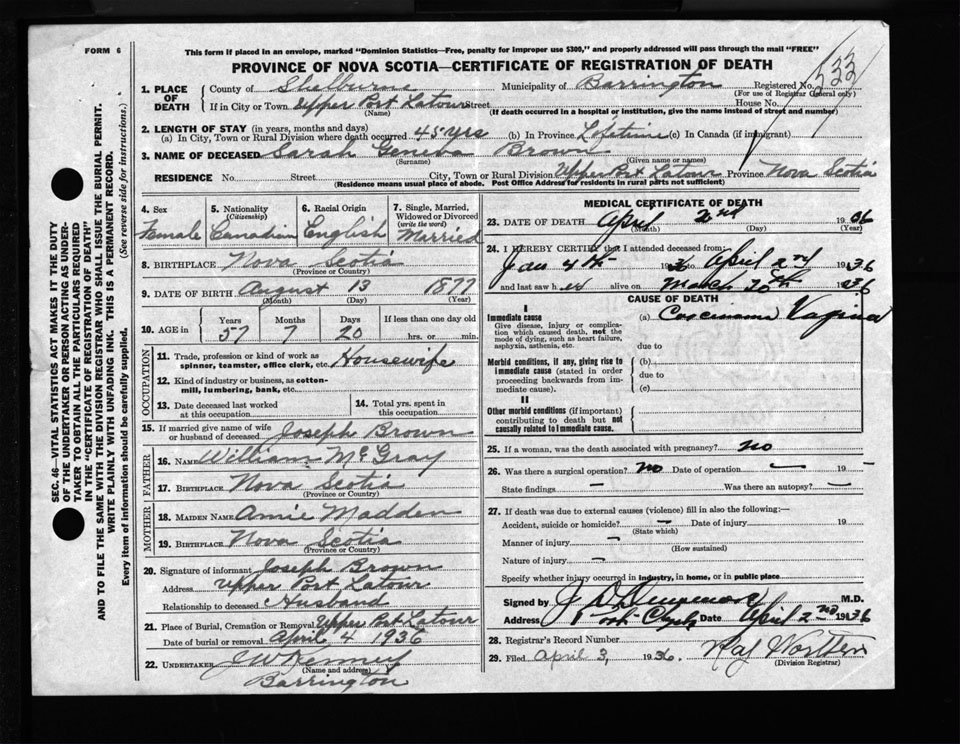 FORM 6
This form if placed in an envelope, marked "Dominion Statistics—Free, penalty for improper use $300," and properly addressed will pass through the mail "FREE"
PROVINCE OF NOVA SCOTIA—CERTIFICATE OF REGISTRATION OF DEATH
1. PLACE OF DEATH
County of Shelburne Municipality of Barrington Registered No.
(For use of Registrar General only)
If in City or Town Upper Port Latour Street House No.
(Name) (If death occurred in a hospital or institution, give the name instead of street and number)
2. LENGTH OF STAY (in years, months and days)
(a) In City, Town or Rural Division where death occurred 45 yrs (b) In Province Lifetime (c) In Canada (if immigrant)
3. NAME OF DECEASED Sarah Geneva Brown
(Surname) (Given name or names)
RESIDENCE No. Street City, Town or Rural Division Upper Port Latour Province Nova Scotia
(Residence means usual place of abode. Post Office Address for residents in rural parts not sufficient)
SEC. 46—VITAL STATISTICS ACT MAKES IT THE DUTY
OF THE UNDERTAKER OR PERSON ACTING AS UNDER-
TAKER TO OBTAIN ALL THE PARTICULARS REQUIRED
IN THE "CERTIFICATE OF REGISTRATION OF DEATH"
AND TO FILE THE SAME WITH THE DIVISION REGISTRAR WHO SHALL ISSUE THE BURIAL PERMIT.
WRITE PLAINLY WITH UNFADING INK. THIS IS A PERMANENT RECORD.
Every item of information should be carefully supplied. (See reverse side for instructions.)
4. Sex
Female
5. Nationality
(Citizenship)
Canadian
6. Racial Origin
English
7. Single, Married,
Widowed or Divorced
(write the word)
Married
8. BIRTHPLACE Nova Scotia
(Province or Country)
9. DATE OF BIRTH August 13 1877
(Month) (Day) (Year)
10. AGE in Years Months Days If less than one day old
57 7 20 hrs. or min.
OCCUPATION
11. Trade, profession or kind of work as
spinner, teamster, office clerk, etc. Housewife
12. Kind of industry or business, as cotton-
mill, lumbering, bank, etc.
13. Date deceased last worked
at this occupation
14. Total yrs. spent in
this occupation
15. If married give name of wife
or husband of deceased Joseph Brown
FATHER
16. NAME William McGray
17. BIRTHPLACE Nova Scotia
(Province or Country)
MOTHER
18. MAIDEN NAME Annie Madden
19. BIRTHPLACE Nova Scotia
(Province or Country)
20. Signature of informant Joseph Brown
Address Upper Port Latour
Relationship to deceased Husband
21. Place of Burial, Cremation or Removal Upper Port Latour
Date of burial or removal April 4 1936
22. UNDERTAKER J W Kenney
(Name and address)
Barrington
MEDICAL CERTIFICATE OF DEATH
23. DATE OF DEATH April 2nd 1936
(Month) (Day) (Year)
24. I HEREBY CERTIFY that I attended deceased from:
Jan 4th 1936 to April 2nd 1936
and last saw her alive on March 30th 1936
CAUSE OF DEATH
I
Immediate cause
Give disease, injury or complica-
tion which caused death, not the
mode of dying, such as heart failure,
asphyxia, asthenia, etc.
(a) Carcinoma Vagina
due to
Morbid conditions, if any, giving rise to
immediate cause (stated in order
proceeding backwards from im-
mediate cause).
(b)
due to
(c)
II
Other morbid conditions (if important)
contributing to death but not
causally related to immediate cause.
25. If a woman, was the death associated with pregnancy? no
26. Was there a surgical operation? no Date of operation — 19 —
State findings — Was there an autopsy? —
27. If death was due to external causes (violence) fill in also the following:—
Accident, suicide or homicide? — Date of injury 19
(State which)
Manner of injury
(How sustained)
Nature of injury
Specify whether injury occurred in industry, in home, or in public place
Signed by M.D.
Address Port Clyde Date April 2nd 1936
28. Registrar's Record Number
29. Filed April 3, 1936.
(Division Registrar)